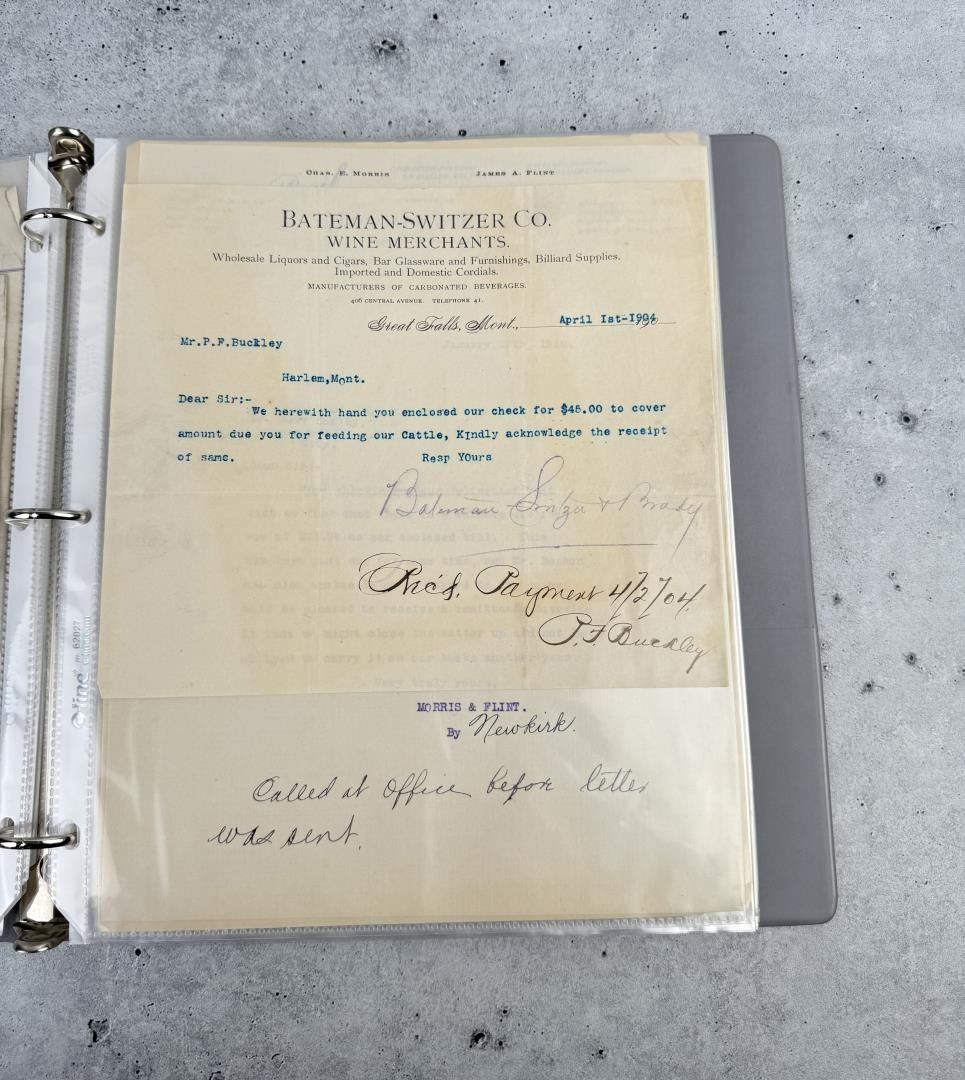 CHAS. E. MORRIS JAMES A. FLINT
BATEMAN-SWITZER CO.
WINE MERCHANTS.
Wholesale Liquors and Cigars, Bar Glassware and Furnishings, Billiard Supplies,
Imported and Domestic Cordials.
MANUFACTURERS OF CARBONATED BEVERAGES.
406 CENTRAL AVENUE. TELEPHONE 41.
Great Falls, Mont., April Ist-I904 190
Mr.P.F.Buckley
Harlem,Mont.
Dear Sir:-
We herewith hand you enclosed our check for $45.00 to cover
amount due you for feeding our Cattle, KIndly acknowledge the receipt
of same. Resp YOurs
Bateman Switzer & Brady
Rec'd. Payment 4/2/04.
P. F. Buckley
Very truly yours,
MORRIS & FLINT.
By Newkirk.
Called at office before letter
was sent.
62027